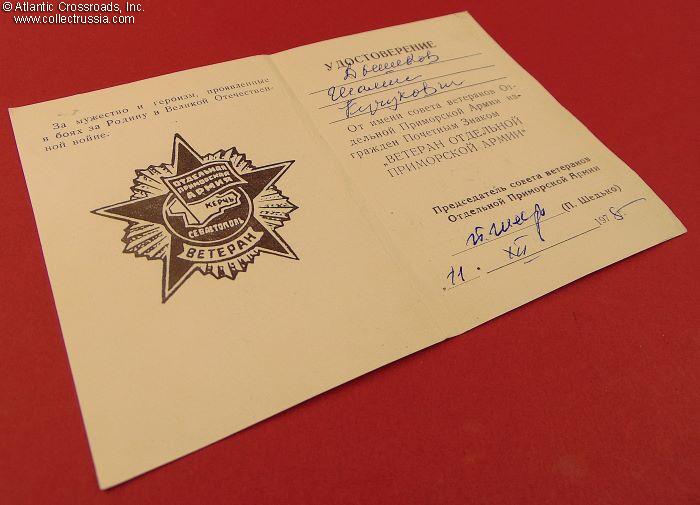 © Atlantic Crossroads, Inc.
www.collectrussia.com
За мужество и героизм, проявленные
в боях за Родину в Великой Отечествен-
ной войне.
ОТДЕЛЬНАЯ
ПРИМОРСКАЯ
АРМИЯ
КЕРЧЬ
СЕВАСТОПОЛЬ
ВЕТЕРАН
УДОСТОВЕРЕНИЕ
От имени совета ветеранов От-
дельной Приморской Армии на-
гражден Почетным Знаком
„ВЕТЕРАН ОТДЕЛЬНОЙ
ПРИМОРСКОЙ АРМИИ“
Председатель совета ветеранов
Отдельной Приморской Армии
(П. Шедько)
11. XII 1975